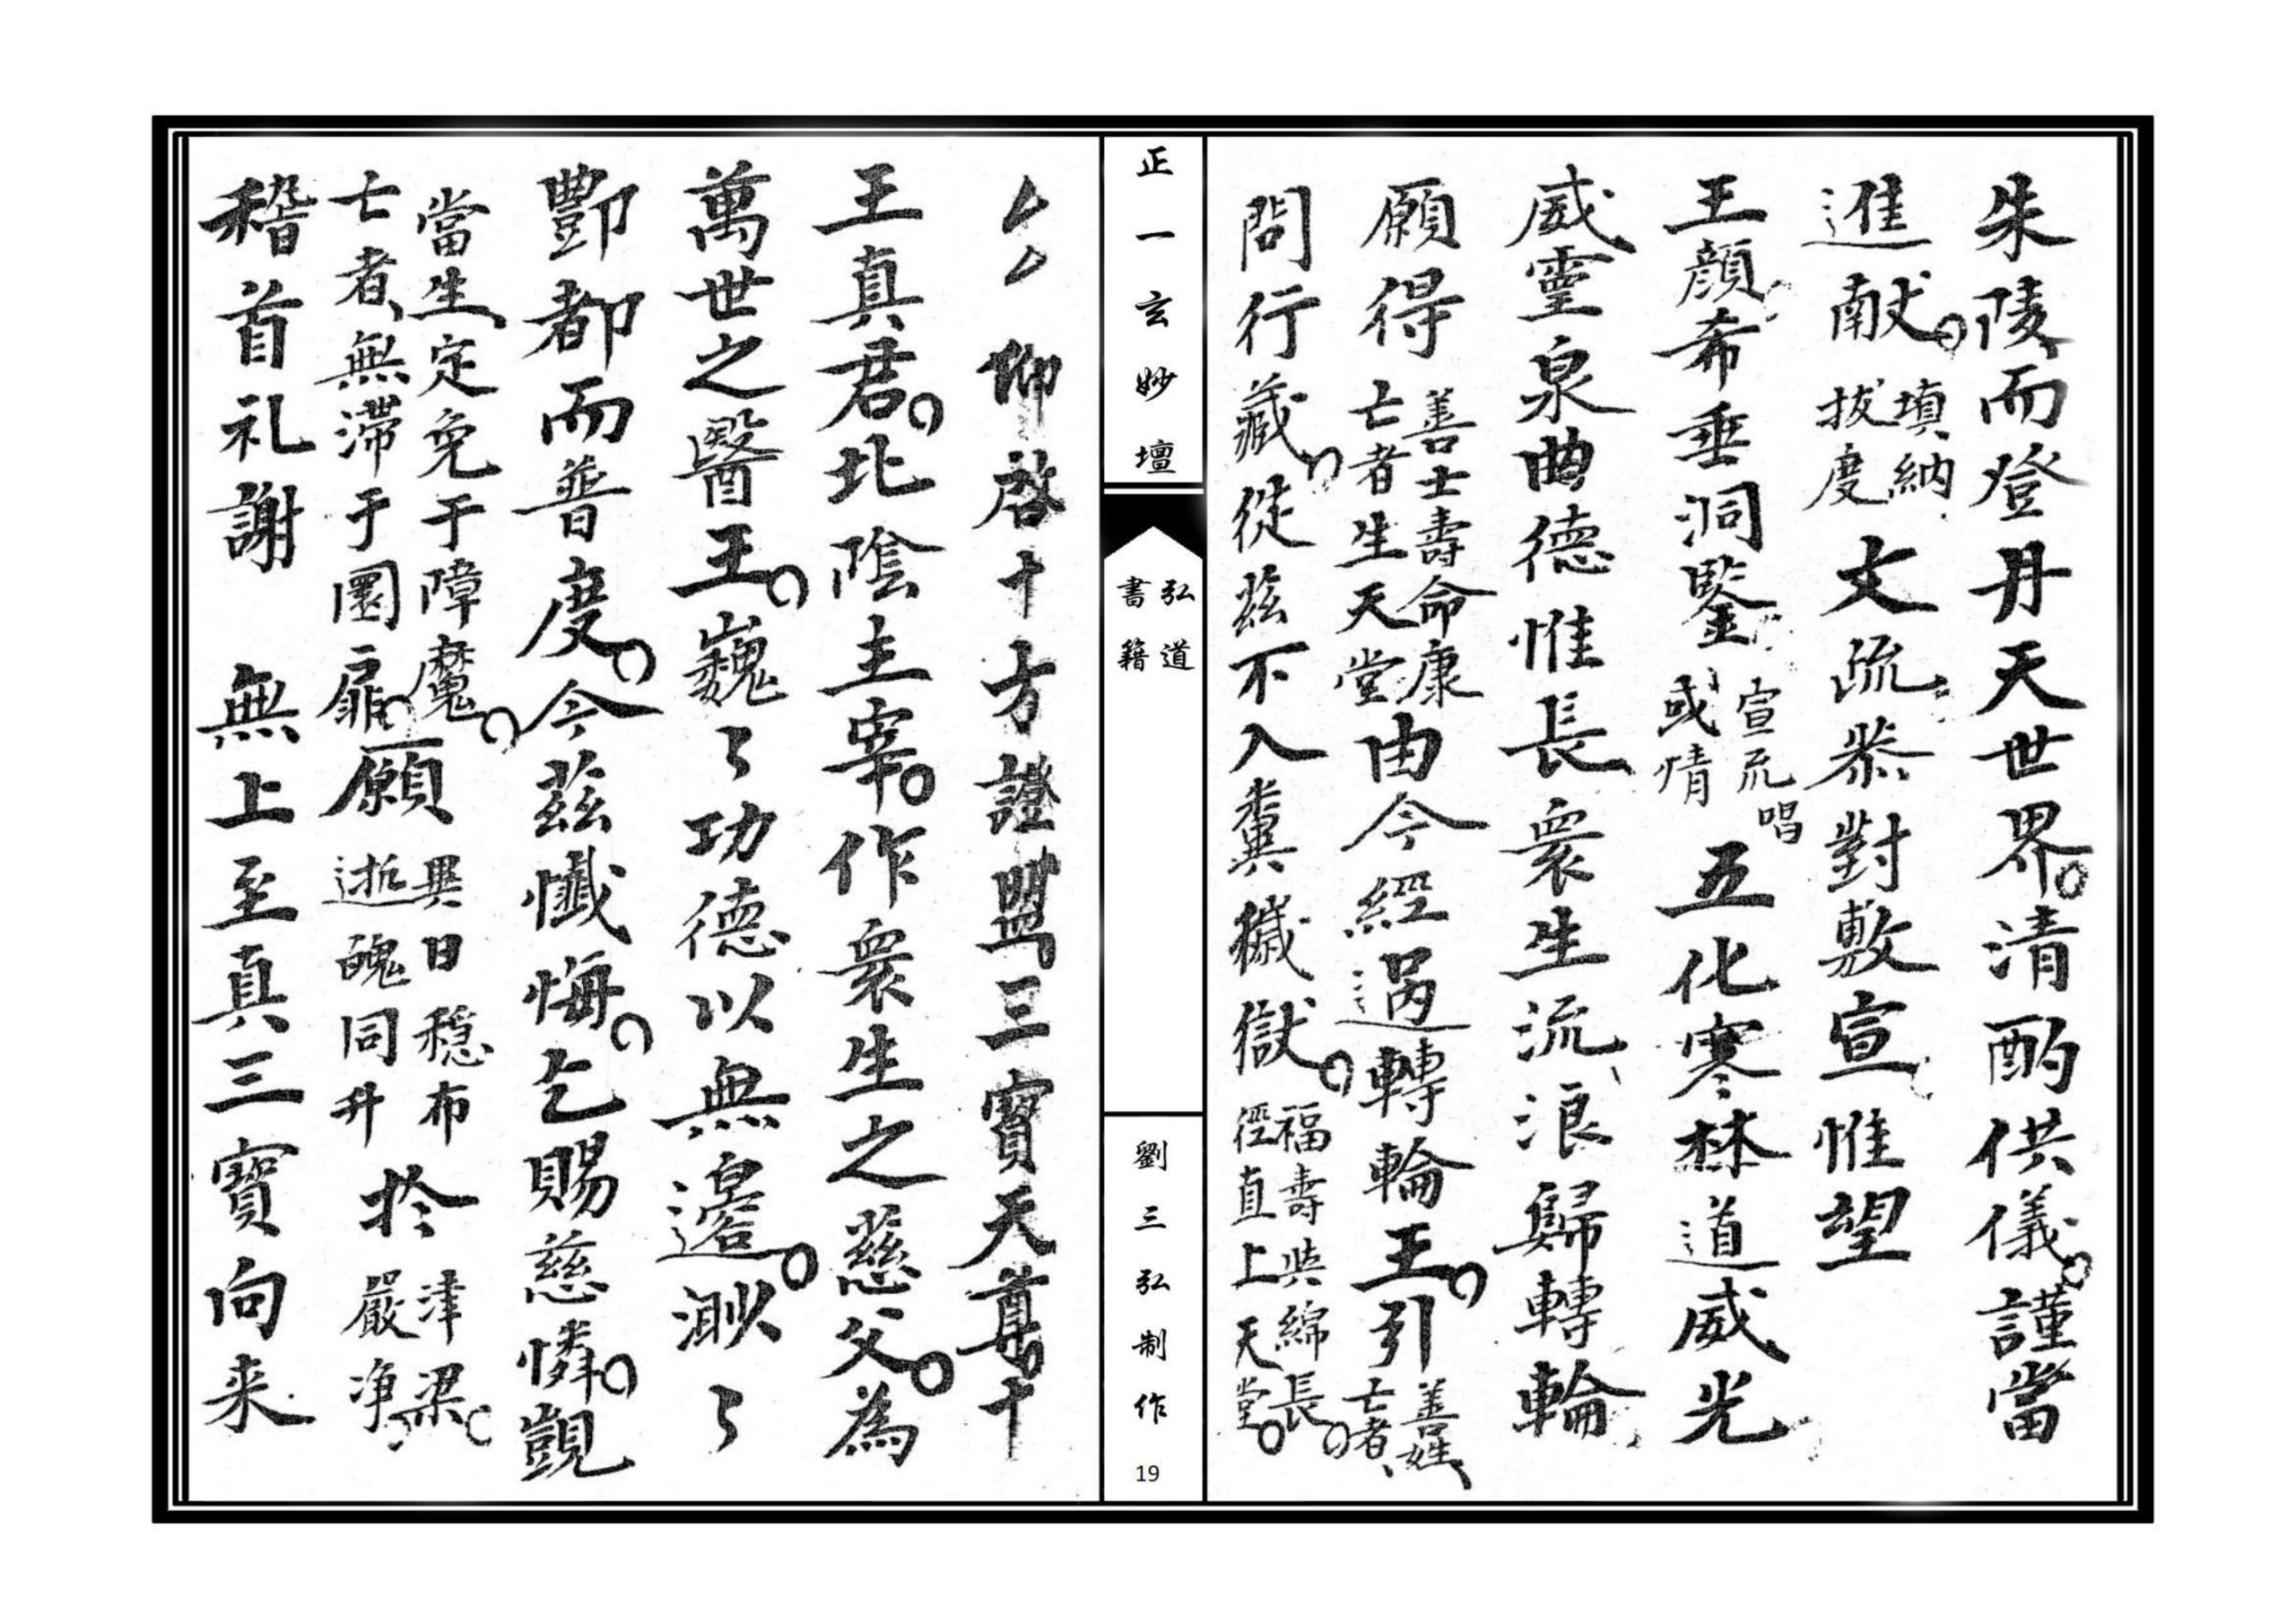 朱陵而登丹天世界。清酌供儀。謹當
進献。填納拔度文疏恭對敷宣惟望
王顏希垂洞鑒宣疏唱或情五化寒林道威光
威靈泉曲德惟長衆生流浪歸轉輪
願得善士壽命康亡者生天堂由今經過轉輪王。引善姓亡者
問行藏。從茲不入糞穢獄。福壽與綿長。徑直上天堂。
正一玄妙壇
弘道書籍
劉三弘制作
19
仰啓十方證盟三寳天尊。十
王真君。北陰主宰。作衆生之慈父。為
萬世之醫王。巍々功德以無邊。渺々
酆都而普度。今茲懺悔。乞賜慈憐。覬
當生定免于障魔。亡者無滞于圜扉。願異日穏布逝魂同升於津梁嚴净
稽首礼謝 無上至真三寳向来